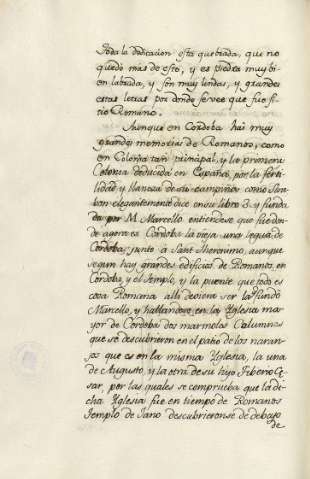 Toda la dedicacion esta quebrada, que no
quedo más de esto, y es piedra muy bi-
en labrada, y son muy lindas, y grandes
estas letras por donde se vee que fue si
tio Romano.
Aunque en Cordoba hai muy
grandes memorias de Romanos, como
en Colonia tan principal, y la primera
Colonia deducida en España, por la ferti-
lidad, y llaneza de su campiña como Stra
bon elegantemente dice en su libro 3. y funda
da por M. Marcello entiendese que fue don
de agora es Cordoba la vieja una legua de
Cordoba, junto a Sant Iheronimo, aunque
segun hay grandes edificios de Romanos en
Cordoba, y el Templo, y la puente que todo es
cosa Romana alli devieron ser la fundó
Marcello, y hallandose en la Yglesia ma
yor de Cordoba dos marmoles Calumnas
que se descubrieron en el patio de los naran-
jos que es en la misma Yglesia, la una
de Augusto, y la otra de su hijo Tiberio Ce-
sar, por las quales se comprueba que la di-
cha Yglesia fue en tiempo de Romanos
Templo de Jano descubrieronse de debajo
de